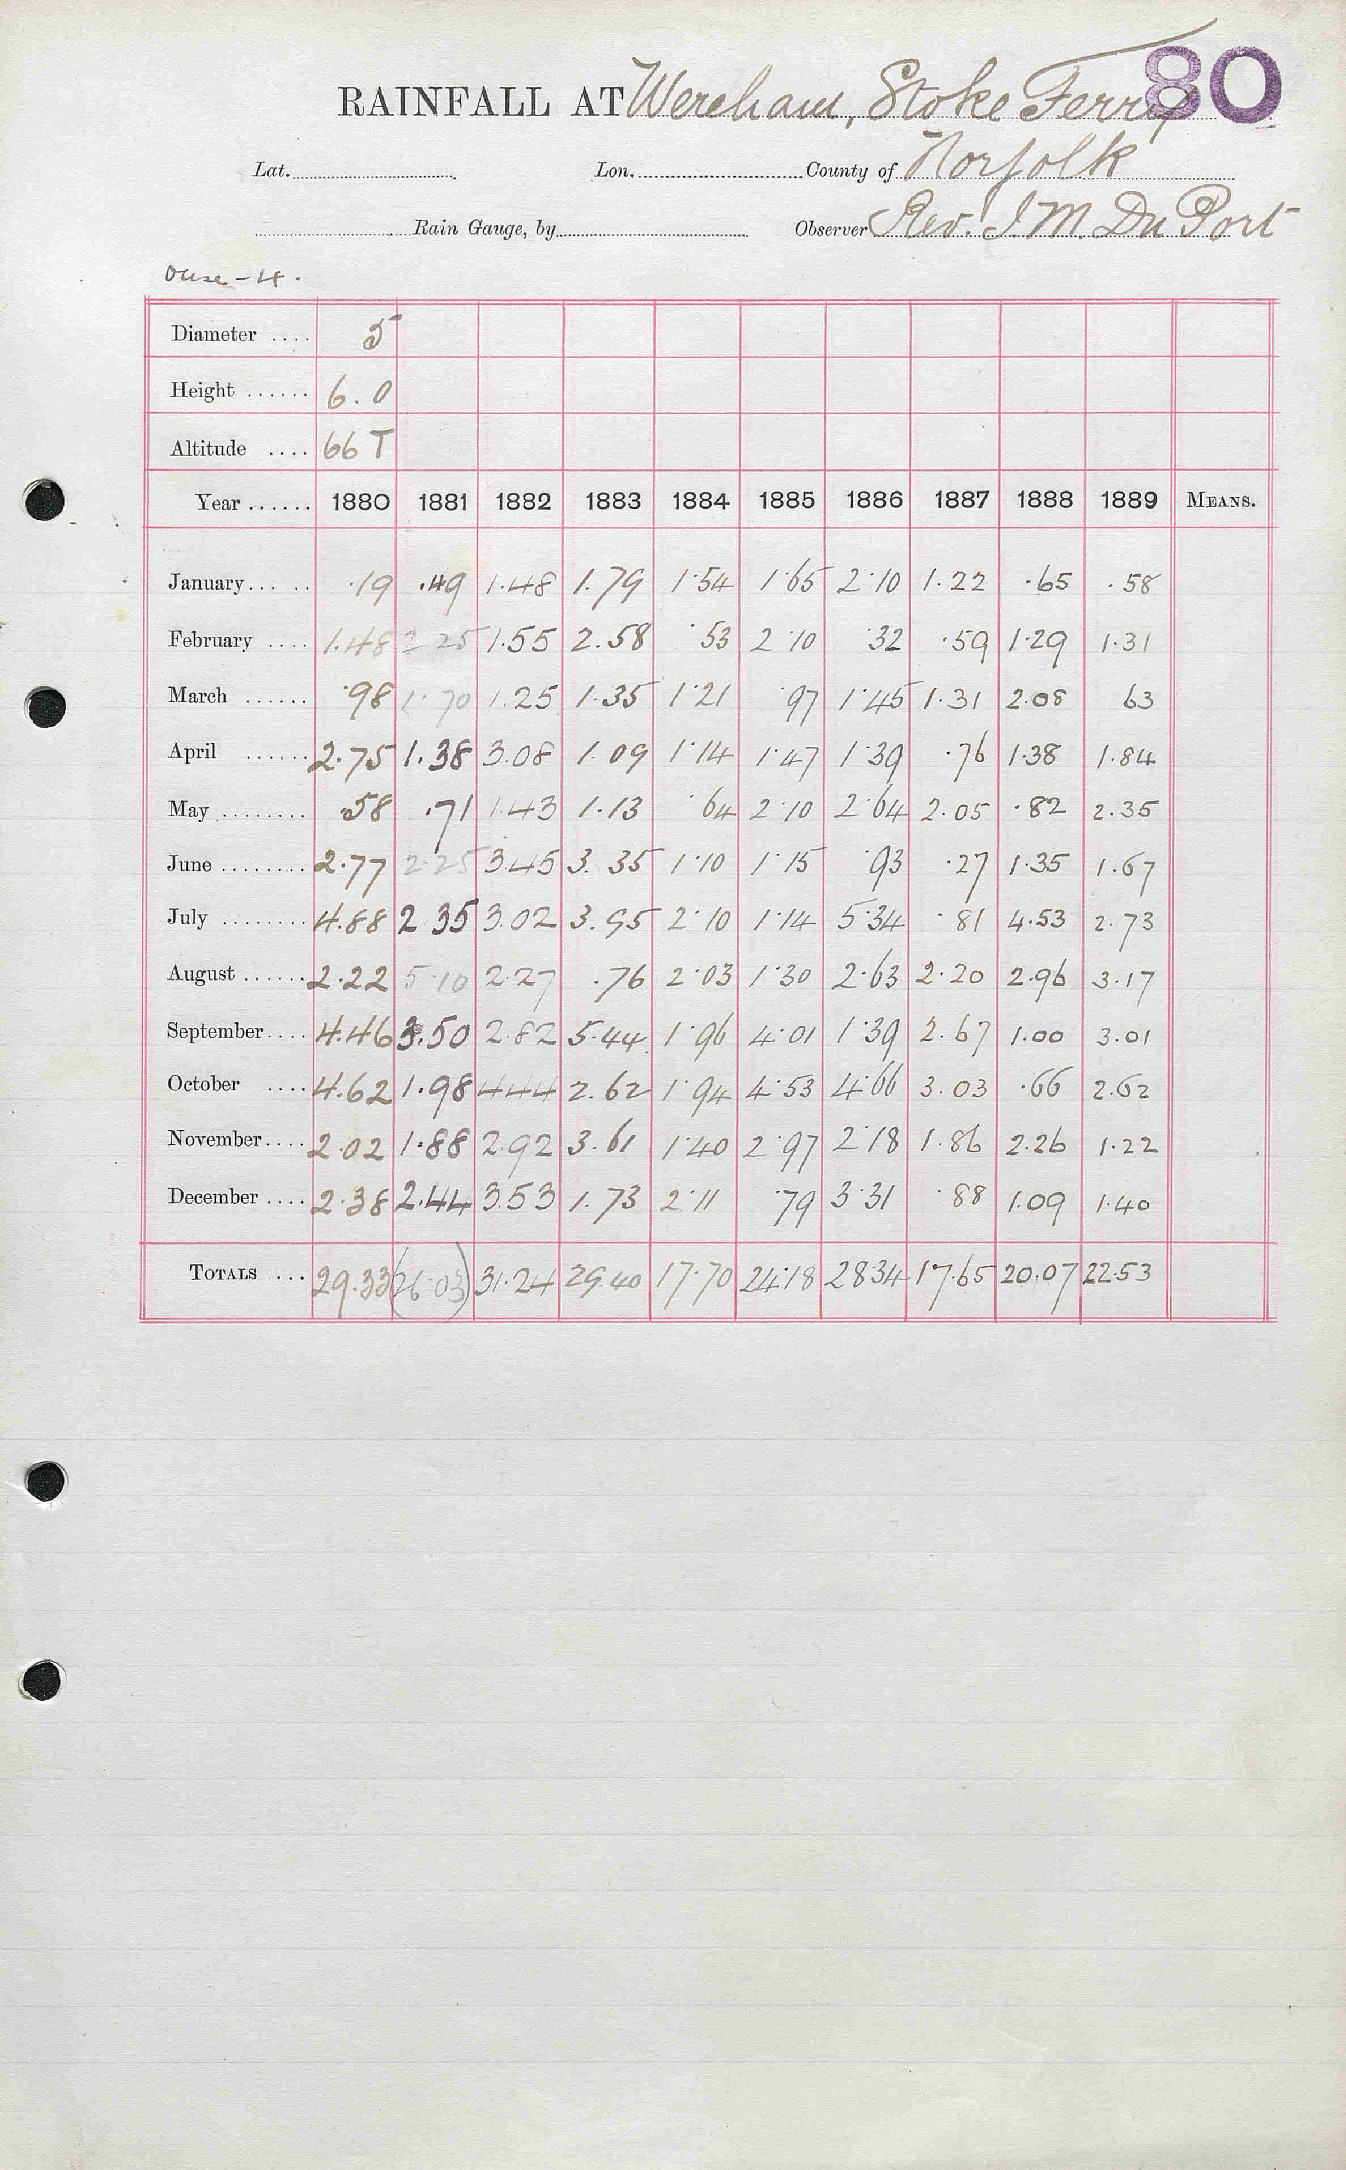 80
RAINFALL AT Wereham, Stoke Ferry
Lat. Lon. County of Norfolk
Rain Gauge, by Observer Rev. J. M. Du Port
Ouse - 4.
Diameter .... 5
Height ...... 6.0
Altitude .... 66 T
Year ...... 1880 1881 1882 1883 1884 1885 1886 1887 1888 1889 MEANS.
January ...... .19 .49 1.48 1.79 1.54 1.65 2.10 1.22 .65 .58
February .... 1.48 2.25 1.55 2.58 .53 2.10 .32 .59 1.29 1.31
March ...... .98 1.70 1.25 1.35 1.21 .97 1.45 1.31 2.08 63
April ...... 2.75 1.38 3.08 1.09 1.14 1.47 1.39 .76 1.38 1.84
May ........ .58 .71 1.43 1.13 .64 2.10 2.64 2.05 .82 2.35
June ........ 2.77 2.25 3.45 3.35 1.10 1.15 .93 .27 1.35 1.67
July ........ 4.88 2 35 3.02 3.95 2.10 1.14 5.34 .81 4.53 2.73
August ...... 2.22 5.10 2.27 .76 2.03 1.30 2.63 2.20 2.96 3.17
September .... 4.46 3.50 2.82 5.44 1.96 4.01 1.39 2.67 1.00 3.01
October .... 4.62 1.98 4.44 2.62 1.94 4.53 4.66 3.03 .66 2.62
November .... 2.02 1.88 2.92 3.61 1.40 2.97 2.18 1.86 2.26 1.22
December .... 2.38 2.44 3.53 1.73 2.11 .79 3.31 .88 1.09 1.40
TOTALS ... 29.33 (26.03) 31.24 29.40 17.70 24.18 28.34 17.65 20.07 22.53